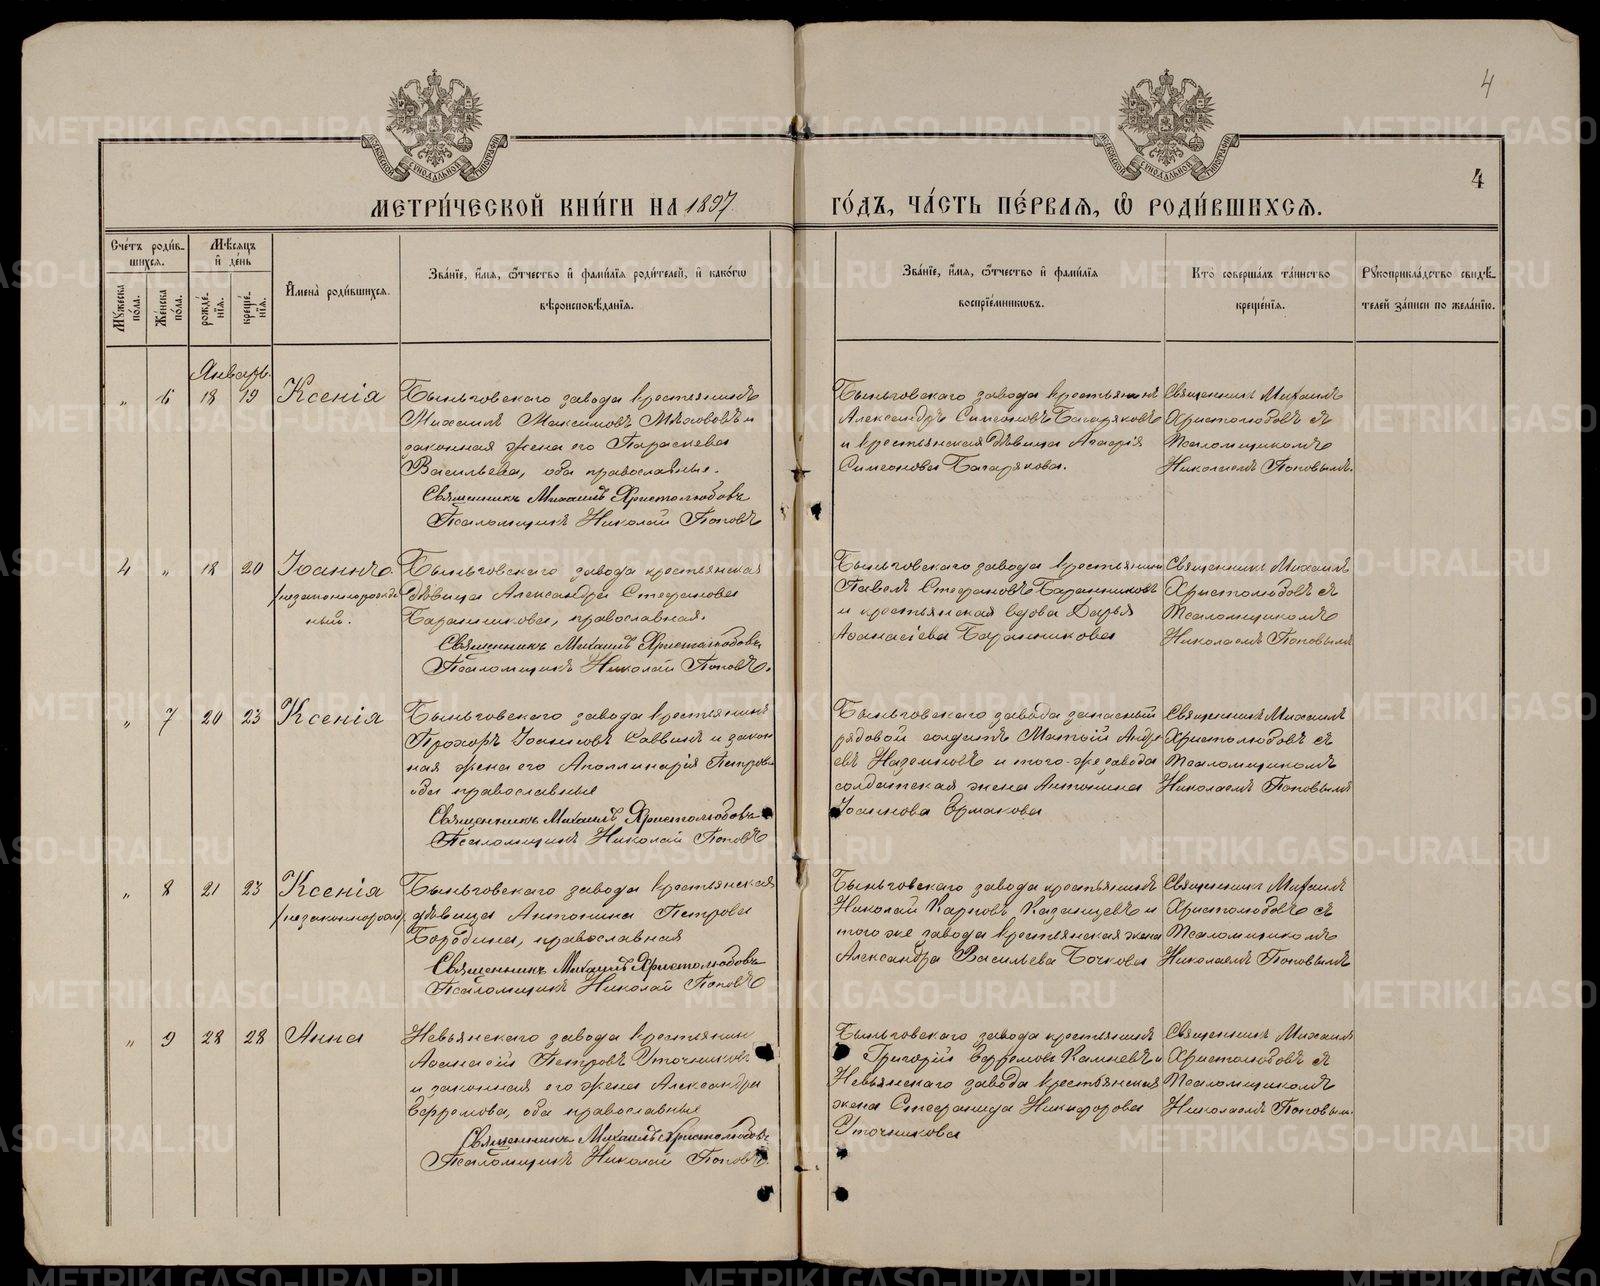 4
4
МОСКОВСКОЙ СѴНОДАЛЬНОЙ ТИПОГРАФІИ
МОСКОВСКОЙ СѴНОДАЛЬНОЙ ТИПОГРАФІИ
МЕТРИ́ЧЕСКОЙ КНИ́ГИ НА 1897 ГО́ДЪ, ЧА́СТЬ ПЕ́РВАЯ, Ѡ РОДИ́ВШИХСЯ.
Сче́тъ роди́в-
шихся.
Мѣ́сяцъ
и҆ де́нь
Мꙋ́жеска по́ла.
Же́нска по́ла.
рожде́-
нїя.
креще́-
нїя.
И҆мена̀ роди́вшихся.
Зва́нїе, и҆́мя, ѻ҆́тчество и҆ фами́лїя роди́телей, и҆ како́гѡ
вѣроисповѣ́данїя.
Зва́нїе, и҆́мя, ѻ҆́тчество и҆ фами́лїя
воспрїе́мникѡвъ.
Кто̀ соверша́лъ та́инство
креще́нїя.
Рꙋкоприкла́дство свидѣ́-
телей за́писи по жела́нїю.
Январь.
„ 6 18 19 Ксенія
Быньговскаго завода крестьянинъ
Михаилъ Максимовъ и
законная жена его Параскева
Васильева, оба православные.
Священникъ Михаилъ Христолюбовъ
Псаломщикъ Николай Поповъ
Быньговскаго завода крестьянинъ
Александръ Симеоновъ Багаряковъ
и крестьянская дѣвица
Симеонова Багарякова.
Священникъ Михаилъ
Христолюбовъ съ
Псаломщикомъ
Николаемъ Поповымъ.
4 „ 18 20 Іоаннъ
/незаконнорожден
ный.
Быньговскаго завода крестьянская
дѣвица Александра Стефанова
Баранникова, православная.
Священникъ Михаилъ Христолюбовъ
Псаломщикъ Николай Поповъ.
Быньговскаго завода крестьянинъ
Павелъ Стефановъ Баранниковъ
и крестьянская вдова Дарья
Аѳанасіева Баранникова
Священникъ Михаилъ
Христолюбовъ съ
Псаломщикомъ
Николаемъ Поповымъ
„ 7 20 23 Ксенія
Быньговскаго завода крестьянинъ
Прохоръ Іоанновъ Саввинъ и закон
ная жена его Аполлинарія Петрова
оба православные
Священникъ Михаилъ Христолюбовъ
Псаломщикъ Николай Поповъ
Быньговскаго завода запасный
рядовой солдатъ Матѳій Андре
евъ и того-же завода
солдатская жена Антонина
Іоаннова Ермакова
Священникъ Михаилъ
Христолюбовъ съ
Псаломщикомъ
Николаемъ Поповымъ
„ 8 21 23 Ксенія
/незаконнорожд/
Быньговскаго завода крестьянская
дѣвица Антонина Петрова
Бородина, православная
Священникъ Михаилъ Христолюбовъ
Псаломщикъ Николай Поповъ
Быньговскаго завода крестьянинъ
Николай Карповъ Казанцевъ и
того же завода крестьянская жена
Александра Васильева Бочкова
Священникъ Михаилъ
Христолюбовъ съ
Псаломщикомъ
Николаемъ Поповымъ
„ 9 28 28 Анна
Невьянскаго завода крестьянин
Аѳанасій Петровъ Уточниковъ
и законная его жена Александра
Ефремова, оба православные
Священникъ Михаилъ Христолюбовъ
Псаломщикъ Николай Поповъ.
Быньговскаго завода крестьянинъ
Григорій Ефремовъ и
Невьянскаго завода крестьянская
жена Стефанида Никифорова
Уточникова
Священникъ Михаилъ
Христолюбовъ съ
Псаломщикомъ
Николаемъ Поповым
METRIKI.GASO-URAL.RU